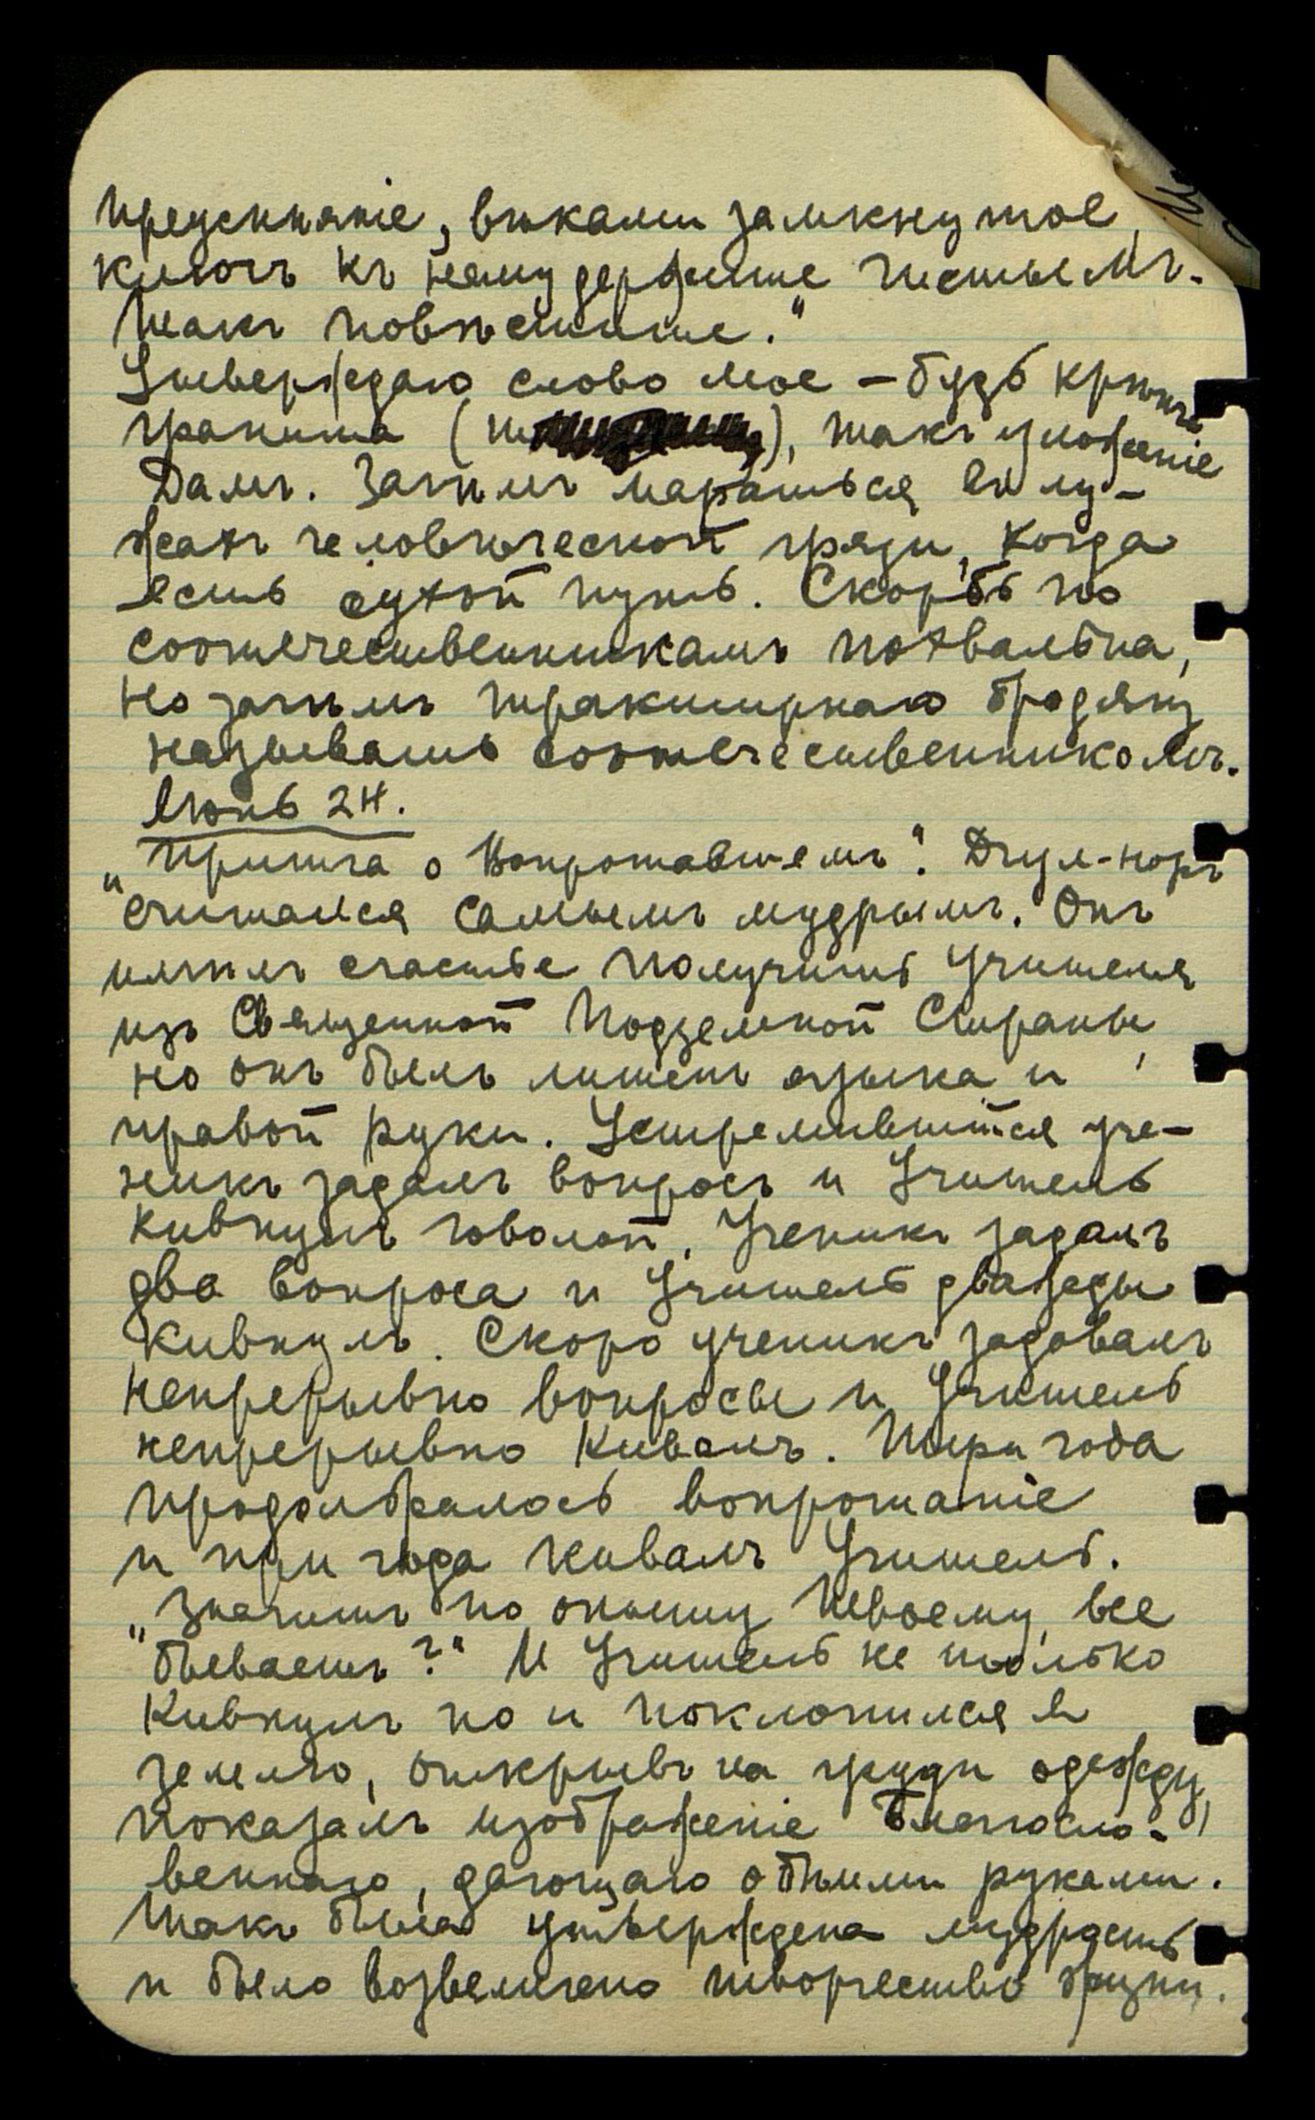 преуспѣяніе, вѣками замкнутое,
ключъ къ нему держите чистымъ.
такъ повѣстите."
Утверждаю слово мое – будь крѣпче
гранита ( ), такъ уложеніе
Дамъ. Зачѣмъ мараться въ лу-
жахъ человѣческой грязи, когда
есть сухой путь. Скорбь по
соотечественникамъ похвальна,
но зачѣмъ трактирнаго бродягу
называть соотечественникомъ.
Іюнь 24.
„Притча о Вопрошавшемъ". Дгул-Норъ
считался самымъ мудрымъ. Онъ
имѣлъ счастье получить Учителя
изъ Священной Подземной Страны,
но онъ былъ лишенъ языка и
правой руки. Устремившійся уче-
никъ задалъ вопросъ и Учитель
кивнулъ головой. Ученикъ задалъ
два вопроса и Учитель дважды
кивнулъ. Скоро ученикъ задавалъ
непрерывно вопросы и Учитель
непрерывно кивалъ. Три года
продолжалось вопрошаніе
и три года кивалъ Учитель.
„Значитъ по опыту Твоему, все
бываетъ?" И Учитель не только
кивнулъ но и поклонился въ
землю, открывъ на груди одежду,
показалъ изображеніе Благосло-
веннаго, дающаго обѣими руками.
Такъ была утверждена мудрость
и было возвеличено творчество жизни.